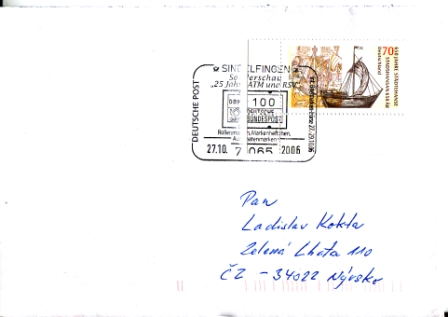 SINDELFINGEN
Sonderschau
"25 Jahre ATM und RSV"
DEUTSCHE POST
100
DEUTSCHE
BUNDESPOST
Rollenmarken, Markenheftchen,
27.10. 71065 2006
70
Deutschland
Pan
Ladislav Kokta
Zelená Lhota 110
CZ - 34022 Nýrsko